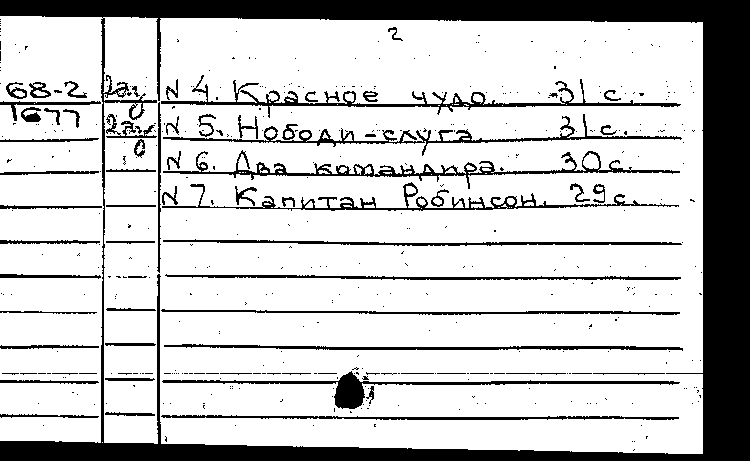 2
68-2 2 N 4. Красное чудо. -31 с.-
1677 N 5. Нободи-слуга. 31 с.
N 6. Два командира. 30 с.
N 7. Капитан Робинсон. 29 с.